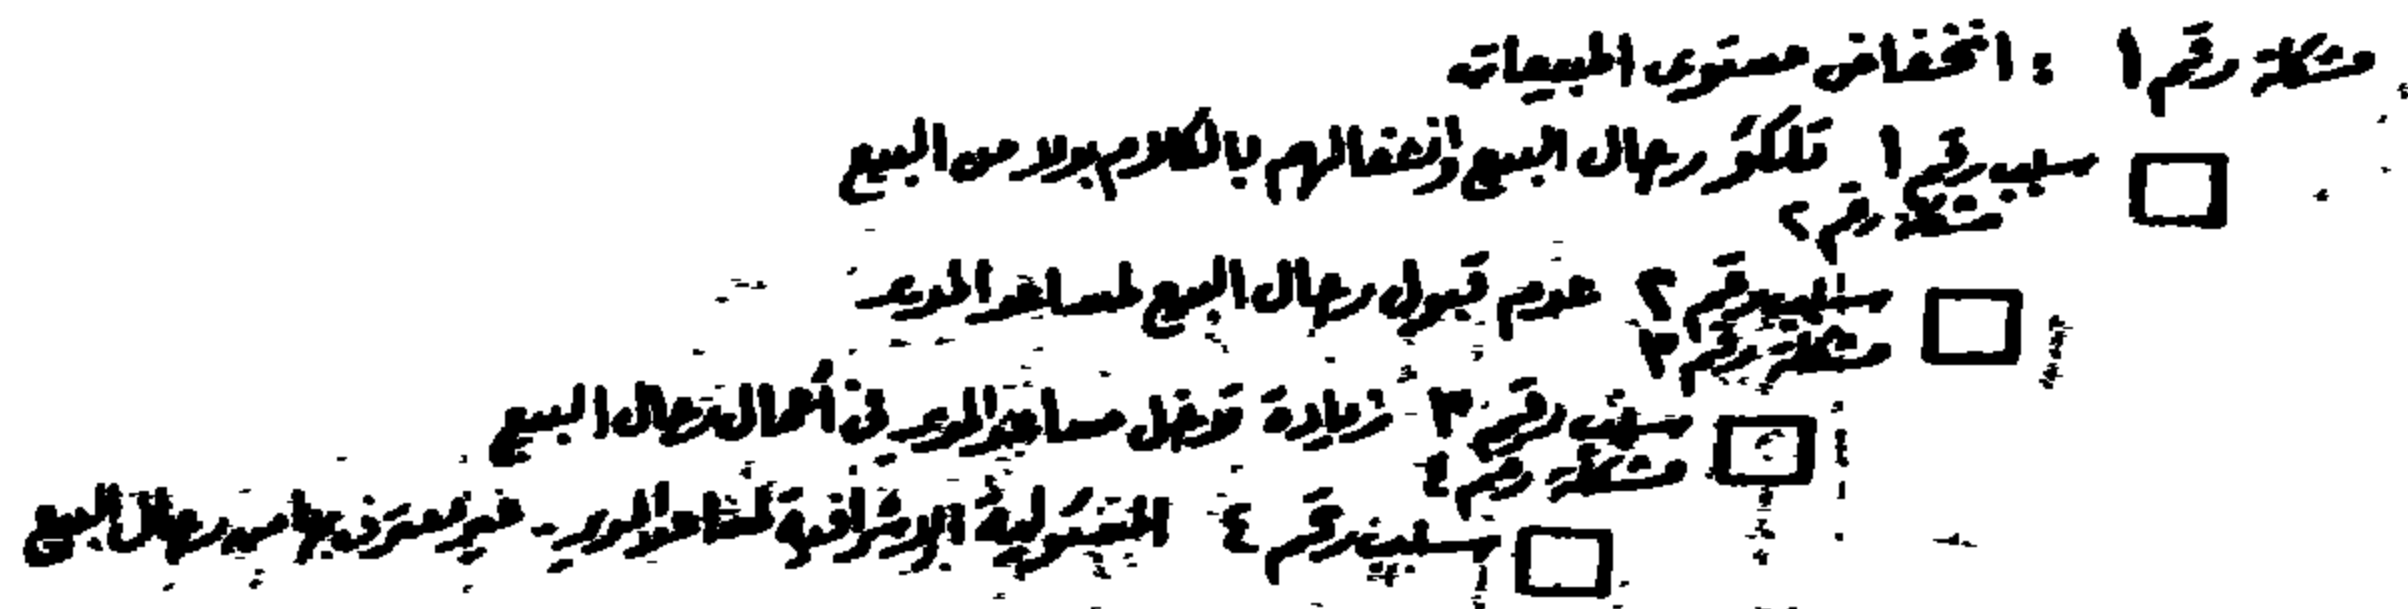 مشكلة رقم ١ : انخفاض مستوى المبيعات
سبب رقم ١ تلكؤ رجال البيع وانشغالهم بالكلام بدلا من البيع
مشكلة رقم ٢
سبب رقم ٢ عدم قبول رجال البيع لمساعد المدير
مشكلة رقم ٣
سبب رقم ٣ زيادة تدخل مساعد المدير في أعمال رجال البيع
مشكلة رقم ٤
سبب رقم ٤ المسئولية الإشرافية لمساعد المدير - غير معترف بها من رجال البيع